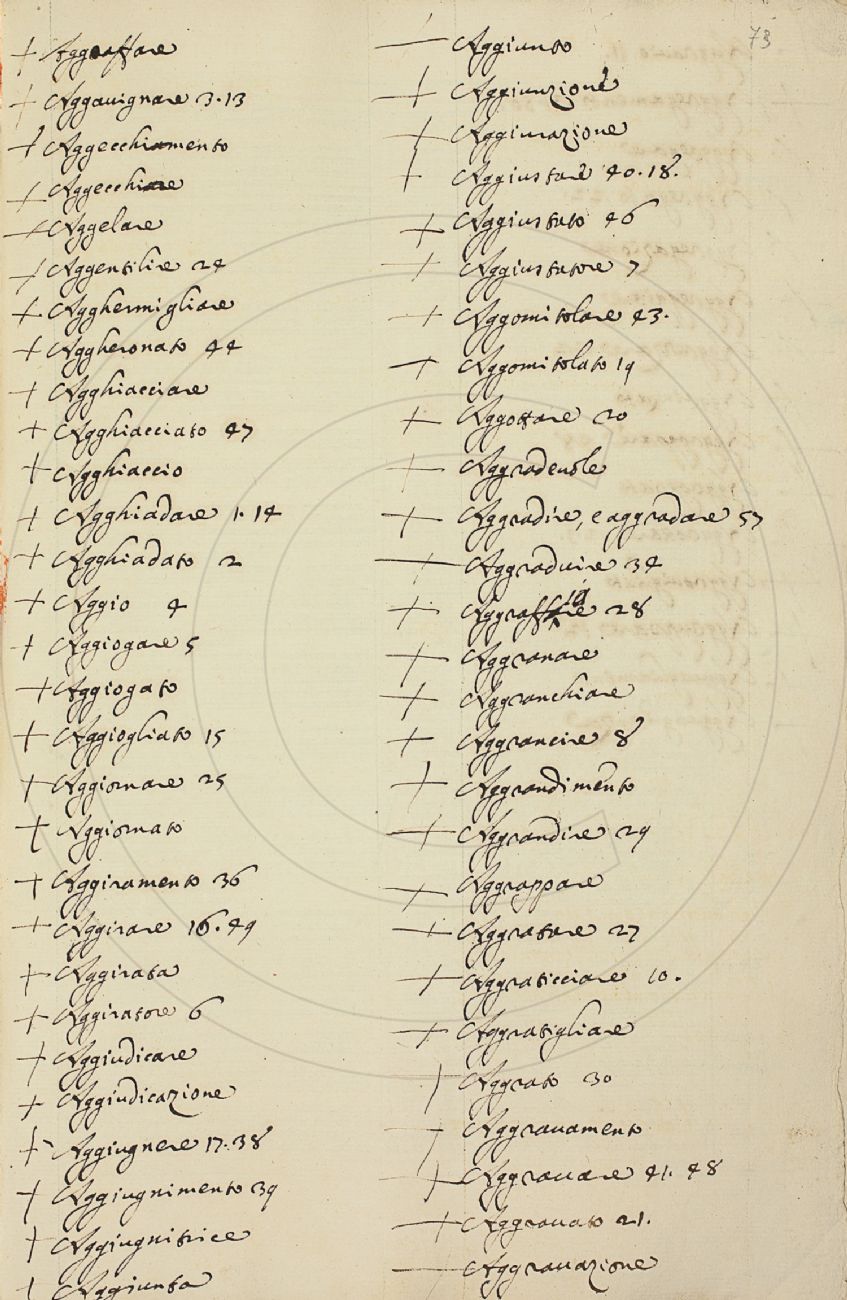 73
Aggraffare
Aggauignare 3.13
Aggecchimento
Aggecchire
Aggelare
Aggentilire 24
Agghermigliare
Aggheronato 44
Agghiacciare
Agghiacciato 47
Agghiaccio
Agghiadare 1.14
Agghiadato 2
Aggio 4
Aggiogare 5
Aggiogato
Aggiogliato 15
Aggiornare 25
Aggiornato
Aggiramento 36
Aggirare 16.49
Aggirata
Aggiratore 6
Aggiudicare
Aggiudicazione
Aggiugnere 17.38
Aggiugnimento 39
Aggiugnitrice
Aggiunta
Aggiunto
Aggiunzione
Aggiurazione
Aggiustare 40.18.
Aggiustato 46
Aggiustatore 7
Aggomitolare 43.
Aggomitolato 19
Aggottare 20
Aggradeuole
Aggradire, e aggradare 57
Aggraduire 34
28
Aggranare
Aggranchiare
Aggrancire 8
Aggrandimento
Aggrandire 29
Aggrappare
Aggratare 27
Aggraticciare 10.
Aggratigliare
Aggrato 30
Aggrauamento
Aggrauare 41.48
Aggrauato 21.
Aggrauazione